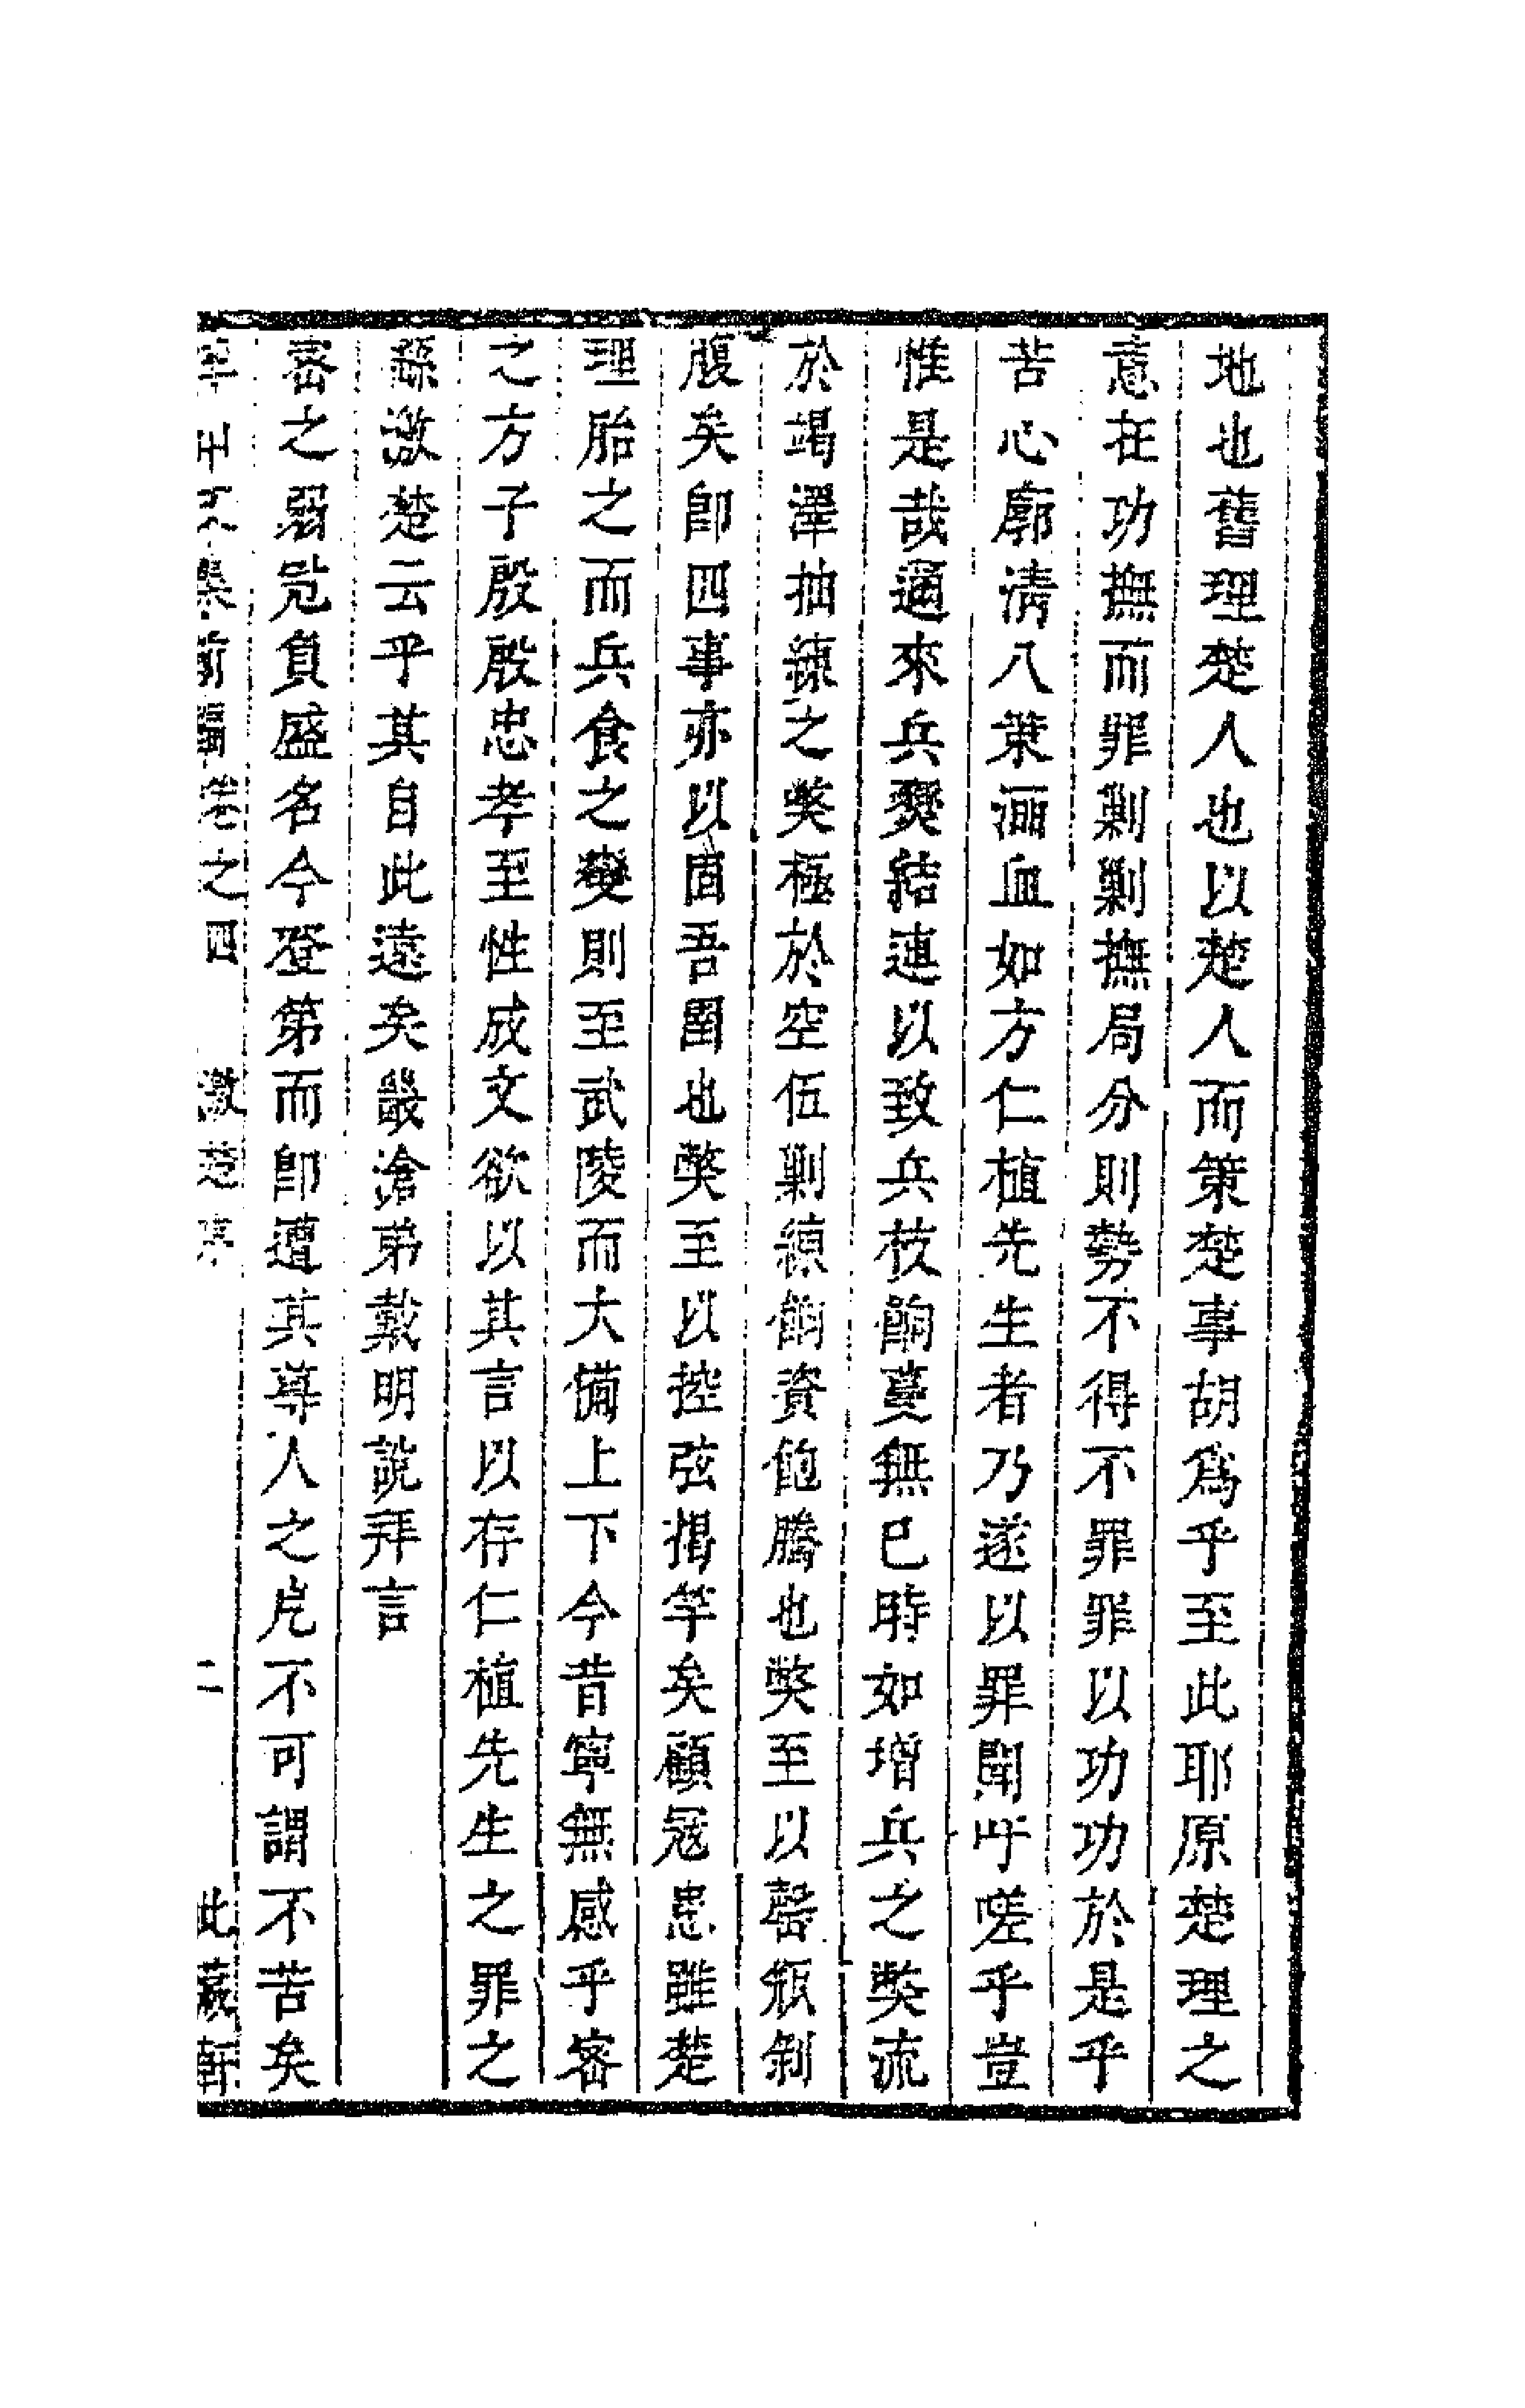 地也舊理楚人也以楚人而策楚事胡爲乎至此耶原楚理之
意在功撫而罪剿剿撫局分則勢不得不罪罪以功功於是乎
苦心廓清八策灑血如方仁植先生者乃遂以罪聞吁嗟乎豈
惟是哉邇來兵爨結連以致兵枝餉蔓無巳時如增兵之獘流
於竭澤抽練之獘極於空伍剿練餉資飽騰也獘至以罄瓶剝
腹矣卽四事亦以固吾圉也獘至以控弦揭竿矣顧寇患雖楚
理胎之而兵食之變則至武陵而大備上下今昔寧無感乎密
之方子殷殷忠孝至性成文欲以其言以存仁植先生之罪之
繇激楚云乎其自此遠矣嚴滄弟戴明説拜言
密之弱冠負盛名今登第而卽遭其尊人之戹不可謂不苦矣
集前編卷之四 激楚序 二 此藏軒